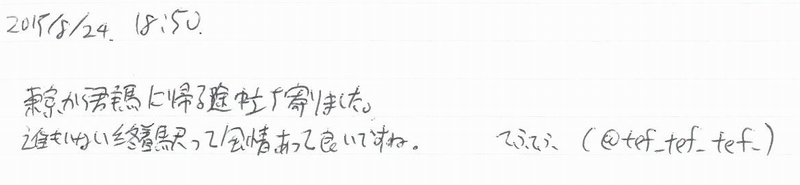 2015/8/24. 18:50.
東京から群馬に帰る途中立ち寄りました。
誰もいない終着駅って風情あって良いですね。 てふてふ (@tef_tef_tef_)